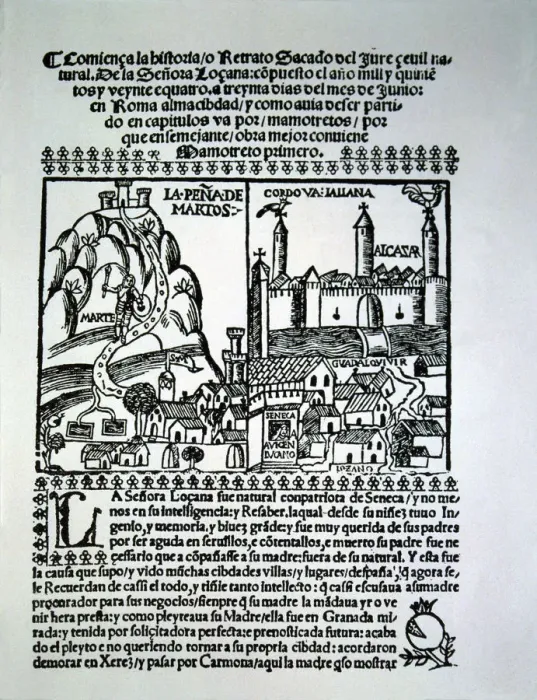 Comiença la historia/o Retrato Sacado del Jure çeuil na/
tural. De la Señora Loçana: cõpuesto el año mill y quinië
tos y veynte equatro. a treynta dias del mes de Junio:
en Roma alma cibdad/y como auia de ser parti/
do en capitulos va por/mamotretos/por
que en semejante/obra mejor conuiene
Mamotreto primero.
LA·PEÑA·DE
MARTOS:
CORDOVA: IALIANA
ALCAZAR
MARTE
GUADALQVIVIR
SENECA
AVICEN
DVCAMO
LOZANO
LA Señora Loçana fue natural conpatriota de Seneca/y no me/
nos en su intelligencia: y Resaber. laqual desde su niñez tuuo In/
genio/y memoria. y biuez grãde: y fue muy querida de sus padres
por ser aguda en seruillos, e cõtentallos, e muerto su padre fue ne
cessario que acõpañasse a su madre: fuera de su natural. Y esta fue
la causa que supo/y vido muchas cibdades villas/y lugares/despaña/ q̃ agora se/
le Recuerdan de cassi el todo, y tiñie tanto intellecto: q̃ cassi escusaua a su madre
procurador para sus negocios/siempre q̃ su madre la mãdaua yr o ve
nir hera presta: y como pleyteaua su Madre/ella fue en Granada mi/
rada: y tenida por soliçitadora perfecta: e prenosticada futura: acaba
do el pleyto e no queriendo tornar a su propria cibdad: acordaron
de morar en Xerez/y pasar por Carmona/aqui la madre q̃so mostrar